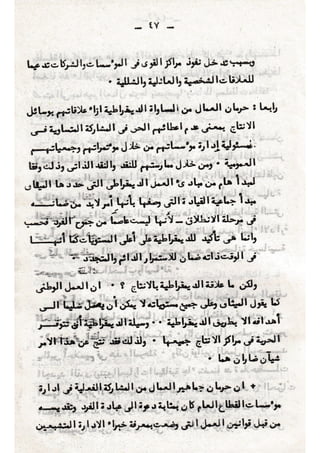 ـ ٤٧ ـ
وبسبب تدخل نفوذ مراكز القوى في المؤسسات والشركات تدعيما
للعلاقات الشخصية والعائلية والشللية ٠
رابعا : حرمان العمال من المساواة الديمقراطية ازاء علاقاتهم بوسائل
الانتاج بمعنى عدم اعطائهم الحق في المشاركة المتساوية فـى
مسئولية إدارة مؤسساتهم من خلال مؤتمراتهم وجمعياتهـم
العمومية ٠ ومن خلال ممارستهم للنقد والنقد الذاتى وذلك وفقا
لمبدأ هام من مبادئ العمل الديمقراطى التى حددها الميثاق
مبدأ جماعية القيادة التى وصفها بأنها أمر لابد من ضمانـه
فى مرحلة الانطلاق ـ لأنها ليست عاصما من جموح الفرد فحسب
وانما هى تأكيد للديمقراطية على أعلى المستويات كما أنهـا
فى الوقت ذاته ضمان للاستمرار الدائم والمتجدد ــ
ولكن ما علاقة الديمقراطية بالانتاج ؟ ٠ ان العمل الوطنى
كما يقول الميثاق وعلى جميع مستوياته لا يمكن أن يصل سليما الـى
أهدافه الا بطريق الديمقراطية ٠٠ وسيلة الديمقراطية أن تتوفـر
الحرية فى مراكز الانتاج جميعها ٠ ولذلك فقد نتج عن هذا الأمر
شيآن ضاران هما ٠
+ ان حرمان جماهير العمال من المشاركة الفعلية فى إدارة
مؤسسات القطاع العام كان بمثابة دعوة الى عبادة الفرد وتقديسـه
من قبل قوانين العمل التى وضعت بمعرفة خبراء الادارة المتشبعين